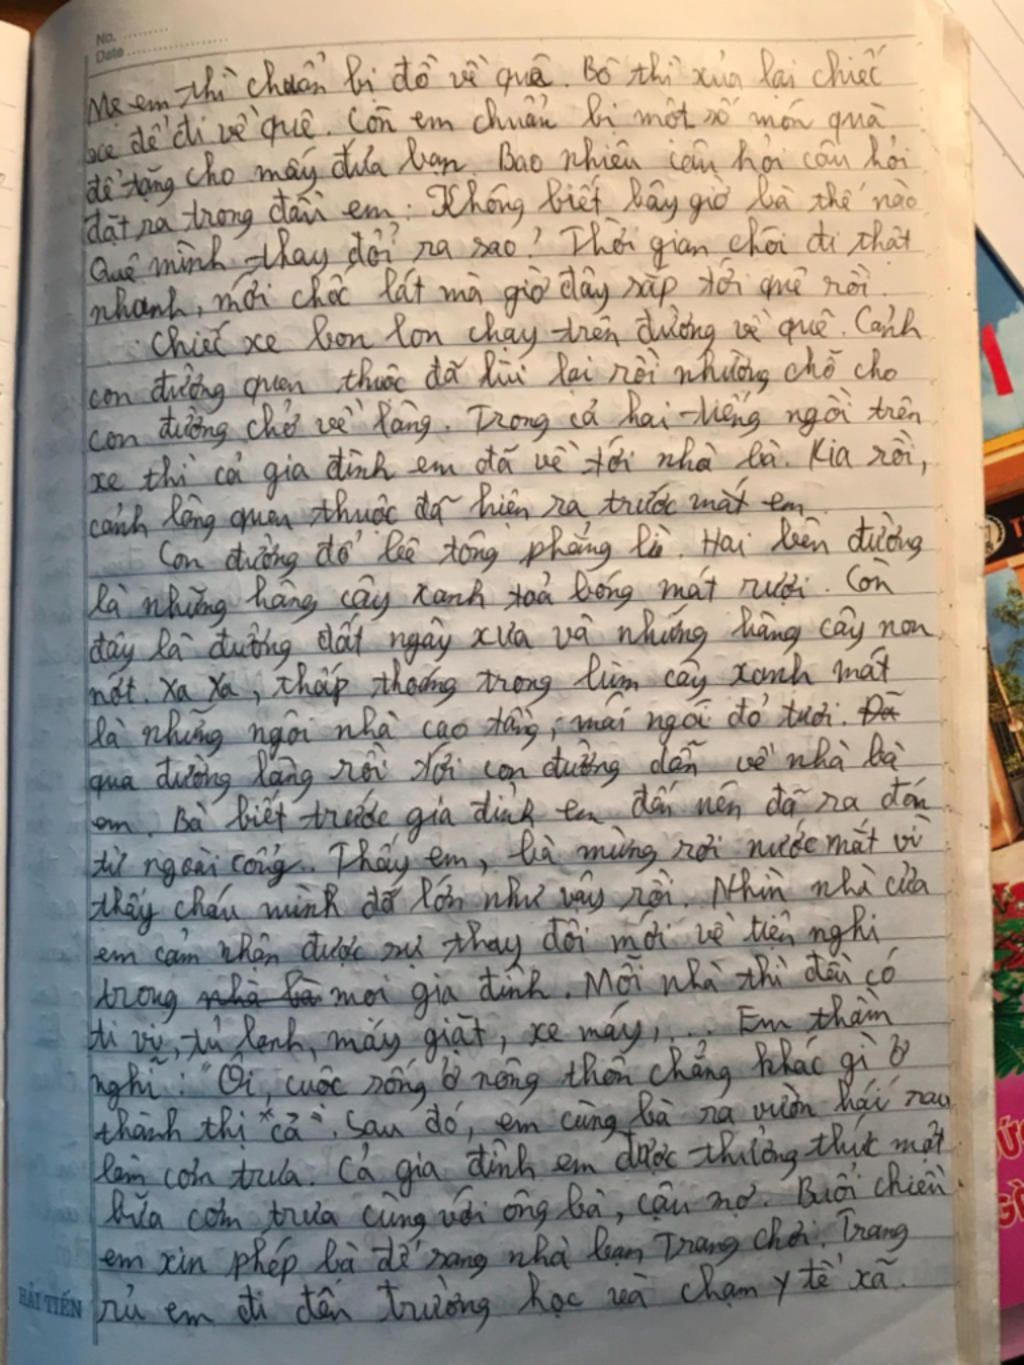 No. ..........
Date ....................
Mẹ em thì chuẩn bị đồ về quê. Bố thì xửa lại chiếc
xe để đi về quê. Còn em chuẩn bị một số món quà
để tặng cho mấy đứa bạn. Bao nhiêu câu hỏi câu hỏi
đặt ra trong đầu em: Không biết bây giờ bà thế nào
Quê mình thay đổi ra sao? Thời gian chôi đi thật
nhanh, mới chốc lát mà giờ đây sắp tới quê rồi.
Chiếc xe bon bon chạy trên đường về quê. Cảnh
con đường quen thuộc đã lùi lại rồi nhường chỗ cho
con đường chở về làng. Trong cả hai tiếng ngồi trên
xe thì cả gia đình em đã về tới nhà bà. Kia rồi,
cảnh làng quen thuộc đã hiện ra trước mắt em.
Con đường đổ bê tông phẳng lì. Hai bên đường
là những hàng cây xanh toả bóng mát rượi. Còn
đây là đường đất ngày xưa và những hàng cây non
nớt. Xa Xa, thấp thoáng trong lùm cây xanh mát
là những ngôi nhà cao tầng, mái ngói đỏ tươi. Đã
qua đường làng rồi tới con đường dẫn về nhà bà
em. Bà biết trước gia đình em đến nên đã ra đón
từ ngoài cổng. Thấy em, bà mừng rơi nước mắt vì
thấy cháu mình đã lớn như vậy rồi. Nhìn nhà cửa
em cảm nhận được sự thay đổi mới về tiện nghi
trong nhà bà mọi gia đình. Mỗi nhà thì đều có
ti vi, tủ lạnh, máy giặt, xe máy,... Em thầm
nghĩ: "Ôi, cuộc sống ở nông thôn chẳng khác gì ở
thành thị "cả". Sau đó, em cùng bà ra vườn hái rau
làm cơm trưa. Cả gia đình em được thưởng thức một
bữa cơm trưa cùng với ông bà, cậu mợ. Buổi chiều
em xin phép bà để sang nhà bạn Trang chơi. Trang
rủ em đi đến trường học và chạm y tế xã.
HẢI TIẾN